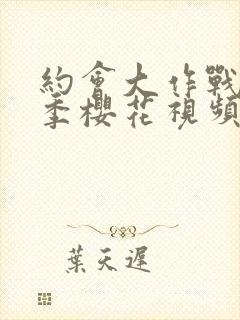 約會大作戰
季櫻花視頻
葉天遲